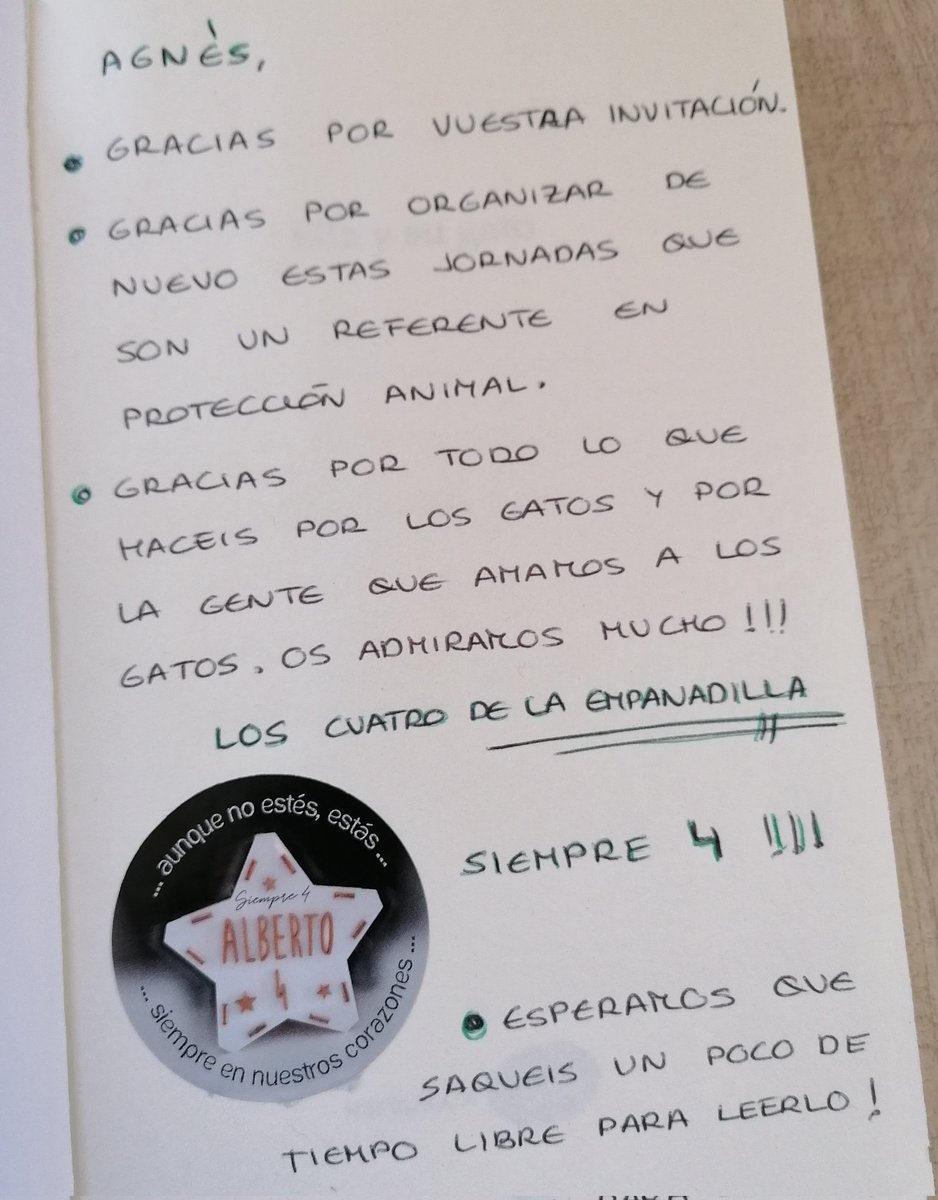 AGNÈS,
• GRACIAS POR VUESTRA INVITACIÓN.
• GRACIAS POR ORGANIZAR DE
NUEVO ESTAS JORNADAS QUE
SON UN REFERENTE EN
PROTECCIÓN ANIMAL.
• GRACIAS POR TODO LO QUE
HACEIS POR LOS GATOS Y POR
LA GENTE QUE AMAMOS A LOS
GATOS. OS ADMIRAMOS MUCHO!!!
LOS CUATRO DE LA EMPANADILLA
SIEMPRE 4 !!!!
... aunque no estés, estás ...
Siempre 4
ALBERTO
4
... siempre en nuestros corazones ...
• ESPERAMOS QUE
SAQUEIS UN POCO DE
TIEMPO LIBRE PARA LEERLO!